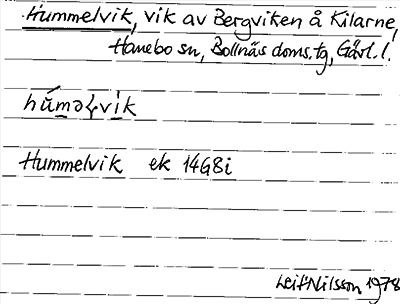 Hummelvik, vik av Bergviken å Kilarne,
Hanebo sn, Bollnäs doms.tg, Gävl. l.
hú̄məⱡvik
Hummelvik ek 14G8i
Leif Nilsson 1978